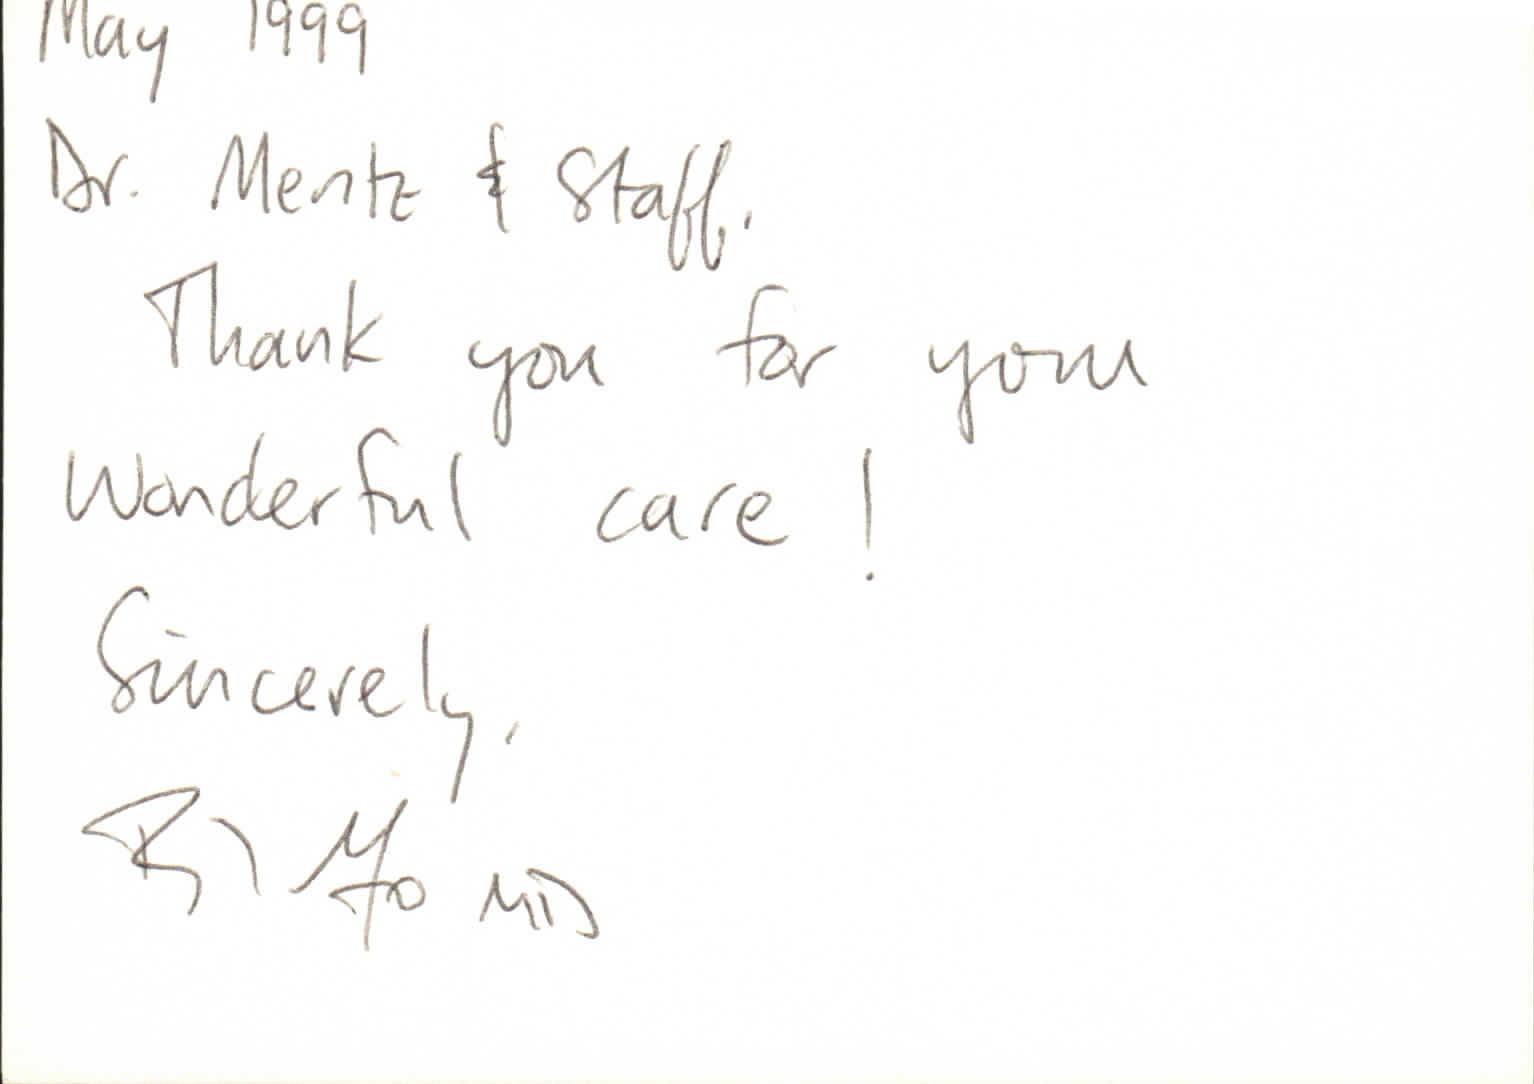 May 1999
Dr. Mentz & Staff,
Thank you for your
Wonderful care!
Sincerely,
MD